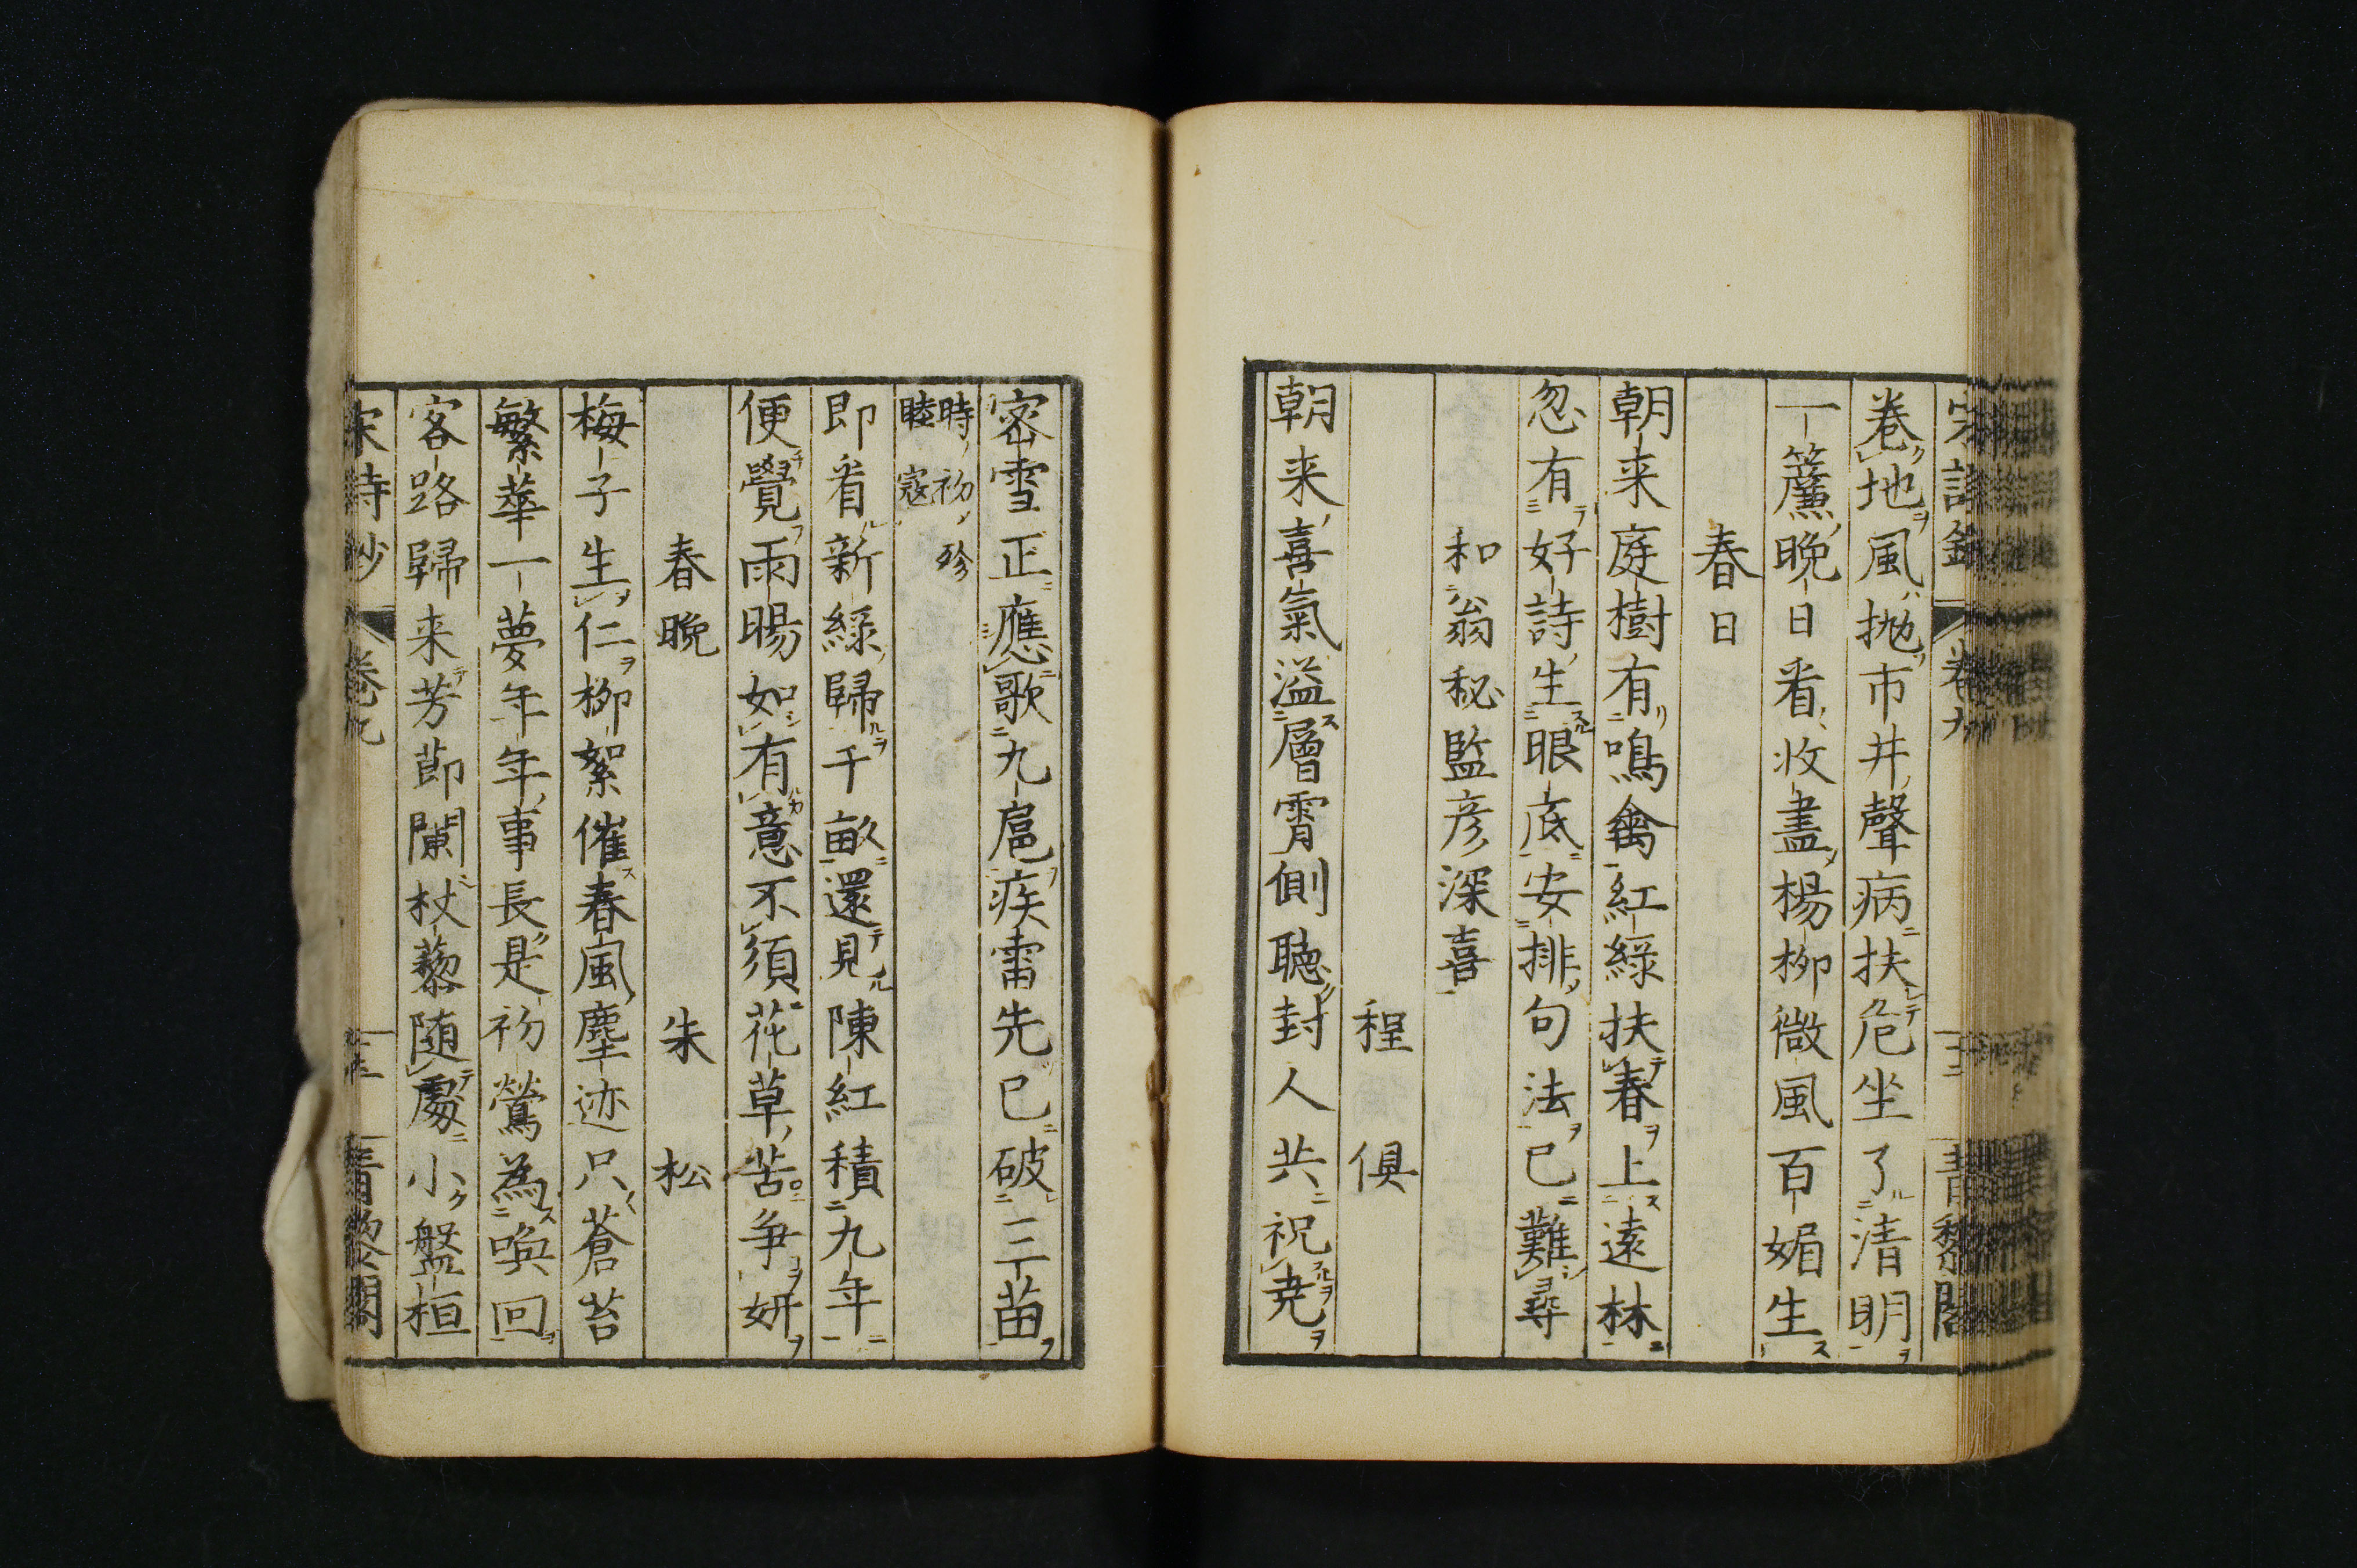 卷地風抛市井聲病扶危坐了清明
一簾晩日看收盡楊柳微風百媚生
春日
朝来庭樹有鳴禽紅緑扶春上遠林
忽有好詩生眼底安排句法已難尋
和翁秘監彦深喜
程俱
朝来喜氣溢層霄側聴封人共祝尭
密雪正應歌九扈疾雷先已破三苗
時初殄
睦寇
即看新緑歸千畝還見陳紅積九年
便覺雨暘如有意不須花草苦爭妍
春晩 朱松
梅子生仁柳絮催春風塵迹只蒼苔
繁華一夢年年事長是初鶯為喚回
客路歸来芳節闌杖藜随處小盤桓
宋詩鈔 卷九